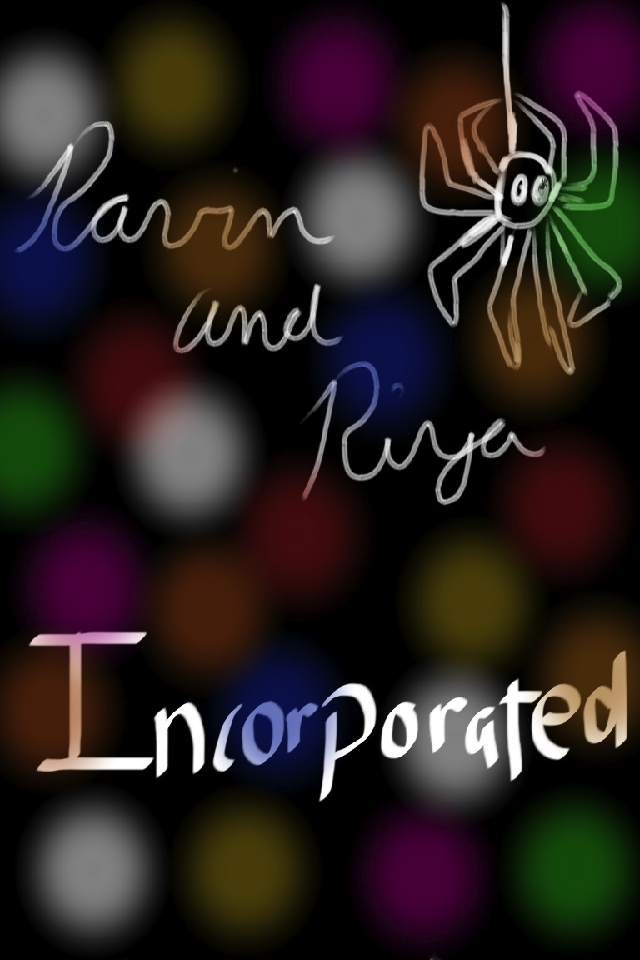 Ravin
and
Riya
Incorporated